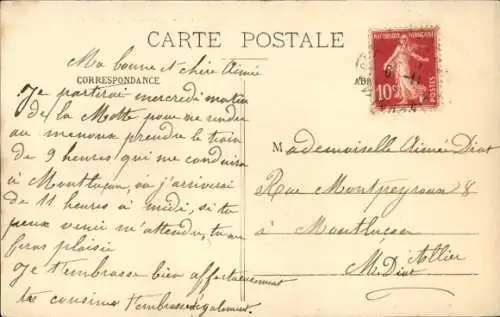 CARTE POSTALE
CORRESPONDANCE
REPUBLIQUE FRANÇAISE
POSTES
10c
Ma bonne et chère Aimée
Je partirai mercredi matin
de la Motte pour me rendre
au menoux prendre le train
de 9 heures qui me conduira
à Montluçon, où j'arriverai
de 11 heures à midi, si tu
peux venir m'attendre, tu me
feras plaisir
Je t'embrasse bien affectueusement
tes cousins t'embrassent également.
Mademoiselle Aimée Diot
Rue Montpeyroux 8
à Montluçon
Allier
M. Diot